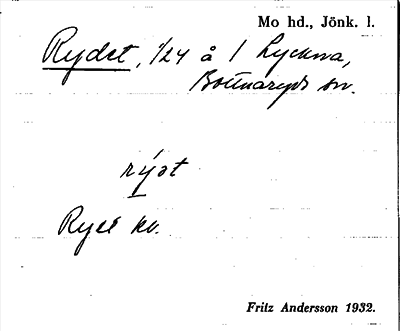 Mo hd., Jönk. l.
Rydet, 1/24 å 1 Lyckna,
Bottnaryds sn.
rýət
Ryet kv.
Fritz Andersson 1932.